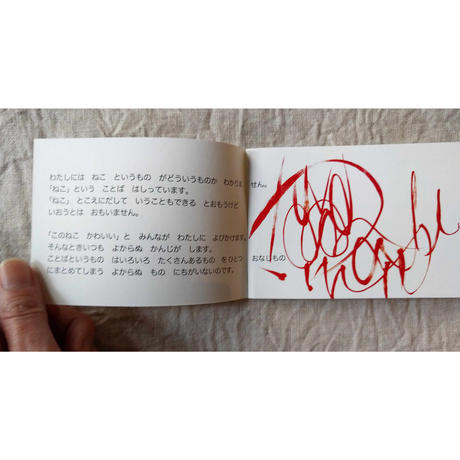 わたしには ねこ というもの がどういうものか わかりま せん。
「ねこ」という ことば はしっています。
「ねこ」 とこえにだして いうこともできる とおもうけど
いおうとは おもいません。
「このねこ かわいい」と みんなが わたしに よびかけます。
そんなときいつも よからぬ かんじが します。
ことばというもの はいろいろ たくさんあるもの をひとつ おなじもの
にまとめてしまう よからぬ もの にちがいないのです。